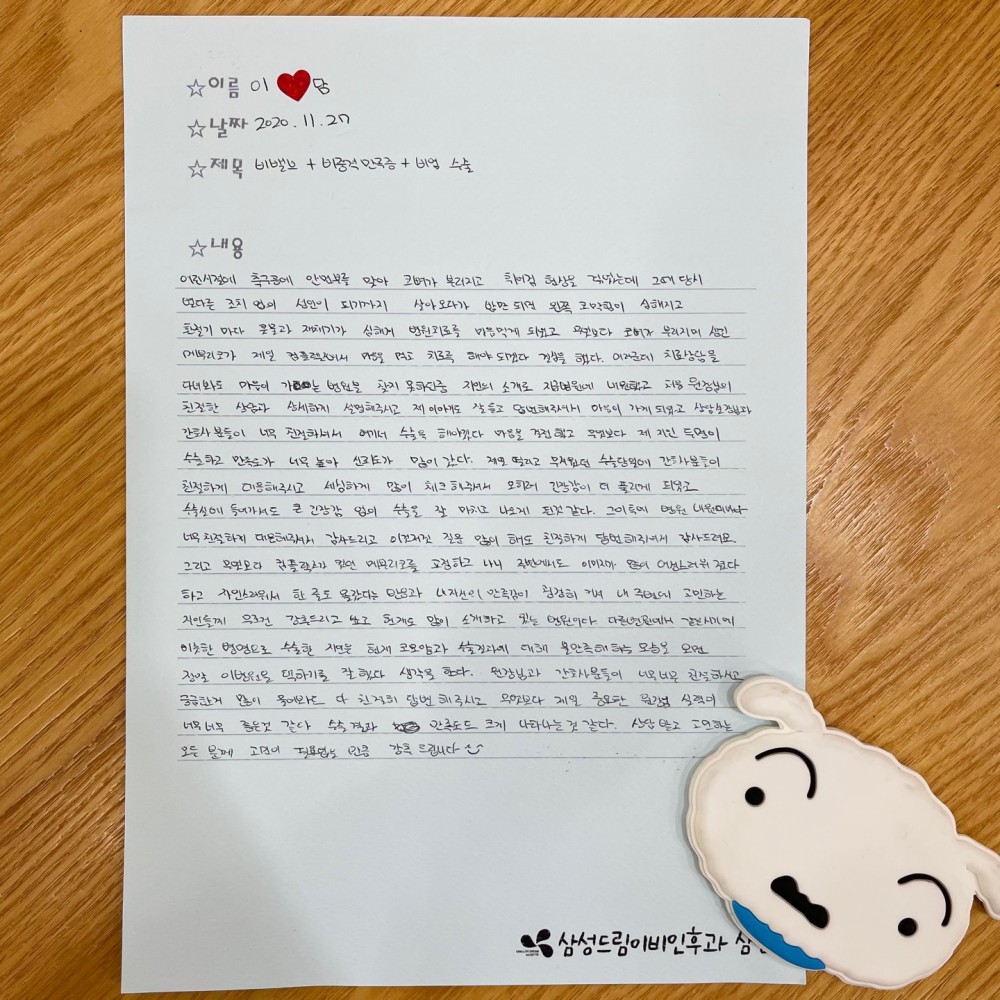 ☆이름 이 ♥ 담
☆날짜 2020. 11. 27
☆제목 비밸브 + 비중격 만곡증 + 비염 수술
☆내용
어린시절에 축구공에 안면부를 맞아 코뼈가 부러지고 휘어짐 현상을 겪었는데 그때 당시
별다른 조치 없이 성인이 되기까지 살아오다가 밤만 되면 왼쪽 코막힘이 심해지고
환절기 마다 콧물과 재채기가 심해져 병원치료를 마음먹게 되었고 무엇보다 코뼈가 부러지며 생긴
메부리코가 제일 컴플렉스여서 마음을 먹고 치료를 해야 되겠다 결심을 했다. 여러군데 치료상담을
다녀와도 마음이 가는 병원을 찾지 못하던중 지인의 소개로 지금병원에 내원했고 처음 원장님의
친절한 상담과 상세하게 설명해주시고 제 이야기도 잘 듣고 답변해주셔서 마음이 가게 되었고 상담실장님과
간호사분들이 너무 친절하셔서 여기서 수술을 해야겠다 마음을 결정 했고 무엇보다 제 지인 두명이
수술하고 만족도가 너무 높아 신뢰도가 많이 갔다. 제일 떨리고 무서웠던 수술당일에 간호사분들이
친절하게 대응해주시고 세심하게 많이 체크 해주셔서 오히려 긴장감이 더 풀리게 되었고
수술실에 들어가서도 큰 긴장감 없이 수술을 잘 마치고 나오게 된것 같다. 그이후에 병원 내원때마다
너무 친절하게 대응해주셔서 감사드리고 이것저것 질문 많이 해도 친절하게 답변해주셔서 감사드려요.
그리고 무엇보다 컴플렉스가 있던 메부리코를 교정하고 나니 주변에서도 이미지가 많이 부드러워 졌다
하고 자연스러워서 한 줄도 몰랐다는 반응과 내자신의 만족감이 굉장히 커서 내 주변에 고민하는
지인들께 무조건 강추드리고 싶고 현재도 많이 소개하고 있는 병원이다 다른병원에서 같은시기에
비슷한 방법으로 수술한 지인은 현재 코모양과 수술결과에 대해 불만족해 하는 모습을 보면
정말 이병원을 택하기를 잘 했다 생각을 한다. 원장님과 간호사분들이 너무너무 친절하시고
궁금한거 많이 물어봐도 다 친절히 답변 해주시고 무엇보다 제일 중요한 원장님 실력이
너무너무 좋은것 같다 수술 결과 만족도도 크게 나타나는 것 같다. 상담 받고 고민하는
모든 분께 고민이 필요없는 만큼 강추 드립니다
삼성드림이비인후과